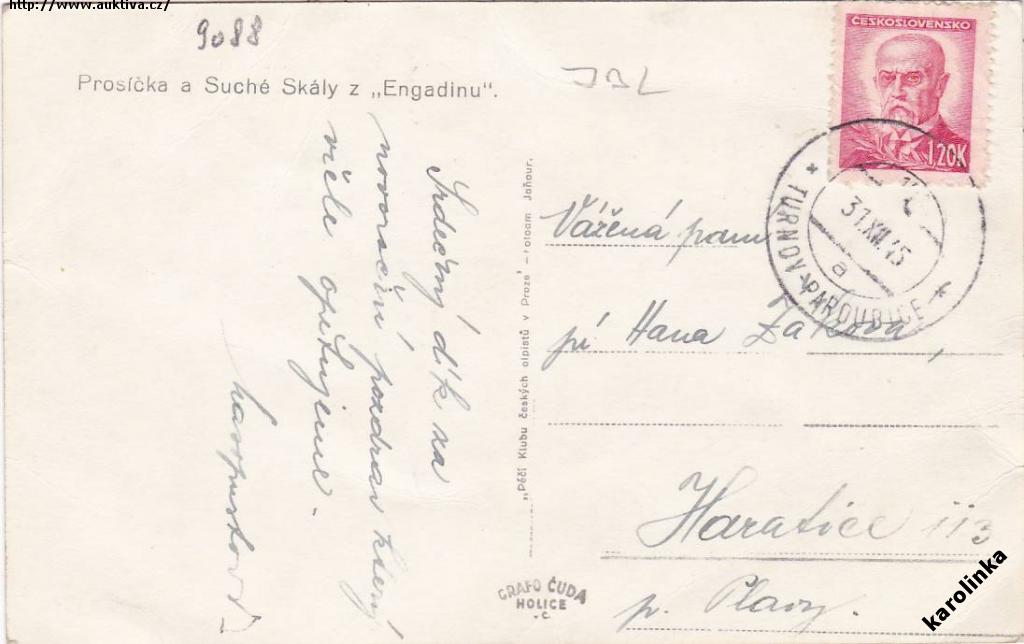 http://www.auktiva.cz/
9088
Prosíčka a Suché Skály z „Engadinu".
JBL
Srdečný dík za
novoroční pozdrav který
vřele opětujeme.
"Péčí Klubu českých alpistů v Praze" – Fotocom Jaňour.
ČESKOSLOVENSKO
1,20K
TURNOV-PAROUBICE
31.XII.45
a
Vážená paní
pí Hana Žákova,
Haratice 113
p. Plavy.
GRAFO ČUDA
HOLICE
karolinka